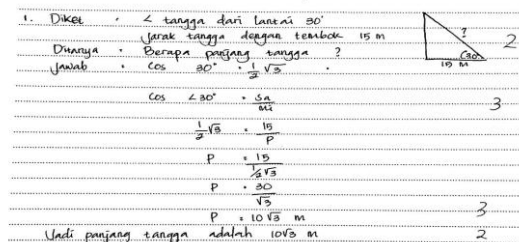 1. Diket : ∠ tangga dari lantai 30°
Jarak tangga dengan tembok 15 m
Ditanya : Berapa panjang tangga ?
Jawab : Cos 30° = 1/2 √3
?
(30°
15 m
2
Cos ∠30° = Sa/Mi
3
1/2 √3 = 15/P
P = 15/(1/2 √3)
P = 30/√3
P = 10√3 m
3
Jadi panjang tangga adalah 10√3 m
2